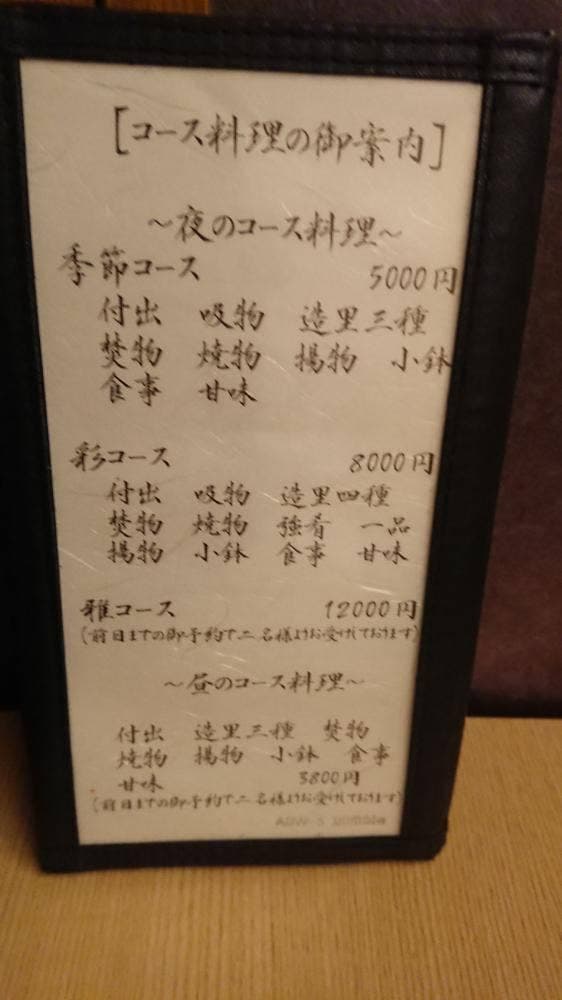 [コース料理の御案内]
～夜のコース料理～
季節コース 5000円
付出 吸物 造里三種
焚物 焼物 揚物 小鉢
食事 甘味
彩コース 8000円
付出 吸物 造里四種
焚物 焼物 強肴 一品
揚物 小鉢 食事 甘味
雅コース 12000円
(前日までの御予約で二名様よりお受けしております)
～昼のコース料理～
付出 造里三種 焚物
焼物 揚物 小鉢 食事
甘味 3800円
(前日までの御予約で二名様よりお受けしております)